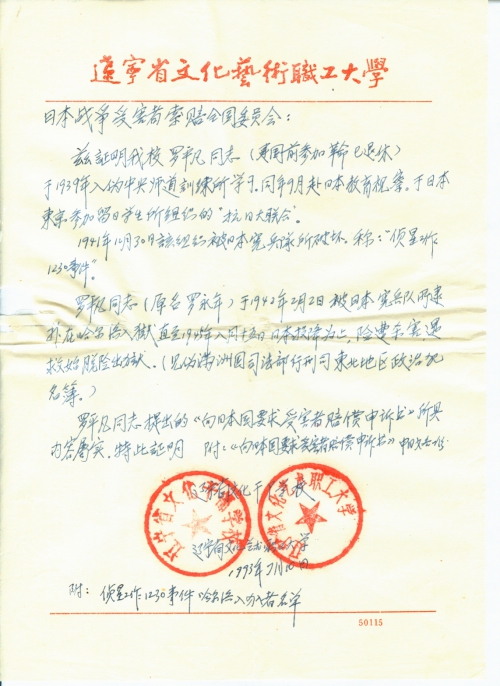 遼寧省文化藝術職工大學
日本战争受害者索赔全国委员会：
兹証明我校罗平凡同志（建国前参加革命已退休）
于1939年入伪中央师道訓練所学习.同年9月赴日本教育視察。于日本
東京参加留日学生所組织的“抗日大联合”。
1941年12月30日該组织被日本宪兵隊所破坏.称：“侦星工作
1230事件”。
罗平凡同志（原名罗永年）于1942年2月2日被日本宪兵队所逮
在哈尔滨入獄直至1945年八月十五日日本投降为止.险遭杀害遇
救始脱险出獄.（見伪满洲国司法部行刑司東北地区政治犯
名簿。）
罗平凡同志提出的《向日本国要求受害者賠償申訴书》所具
内容属实.特此証明 附：《向日本国要求受害者賠償申訴书》
辽宁省文化干部学校
辽宁省文化艺术职工大学
附：侦星工作1230事件哈尔滨入獄者名单
50115